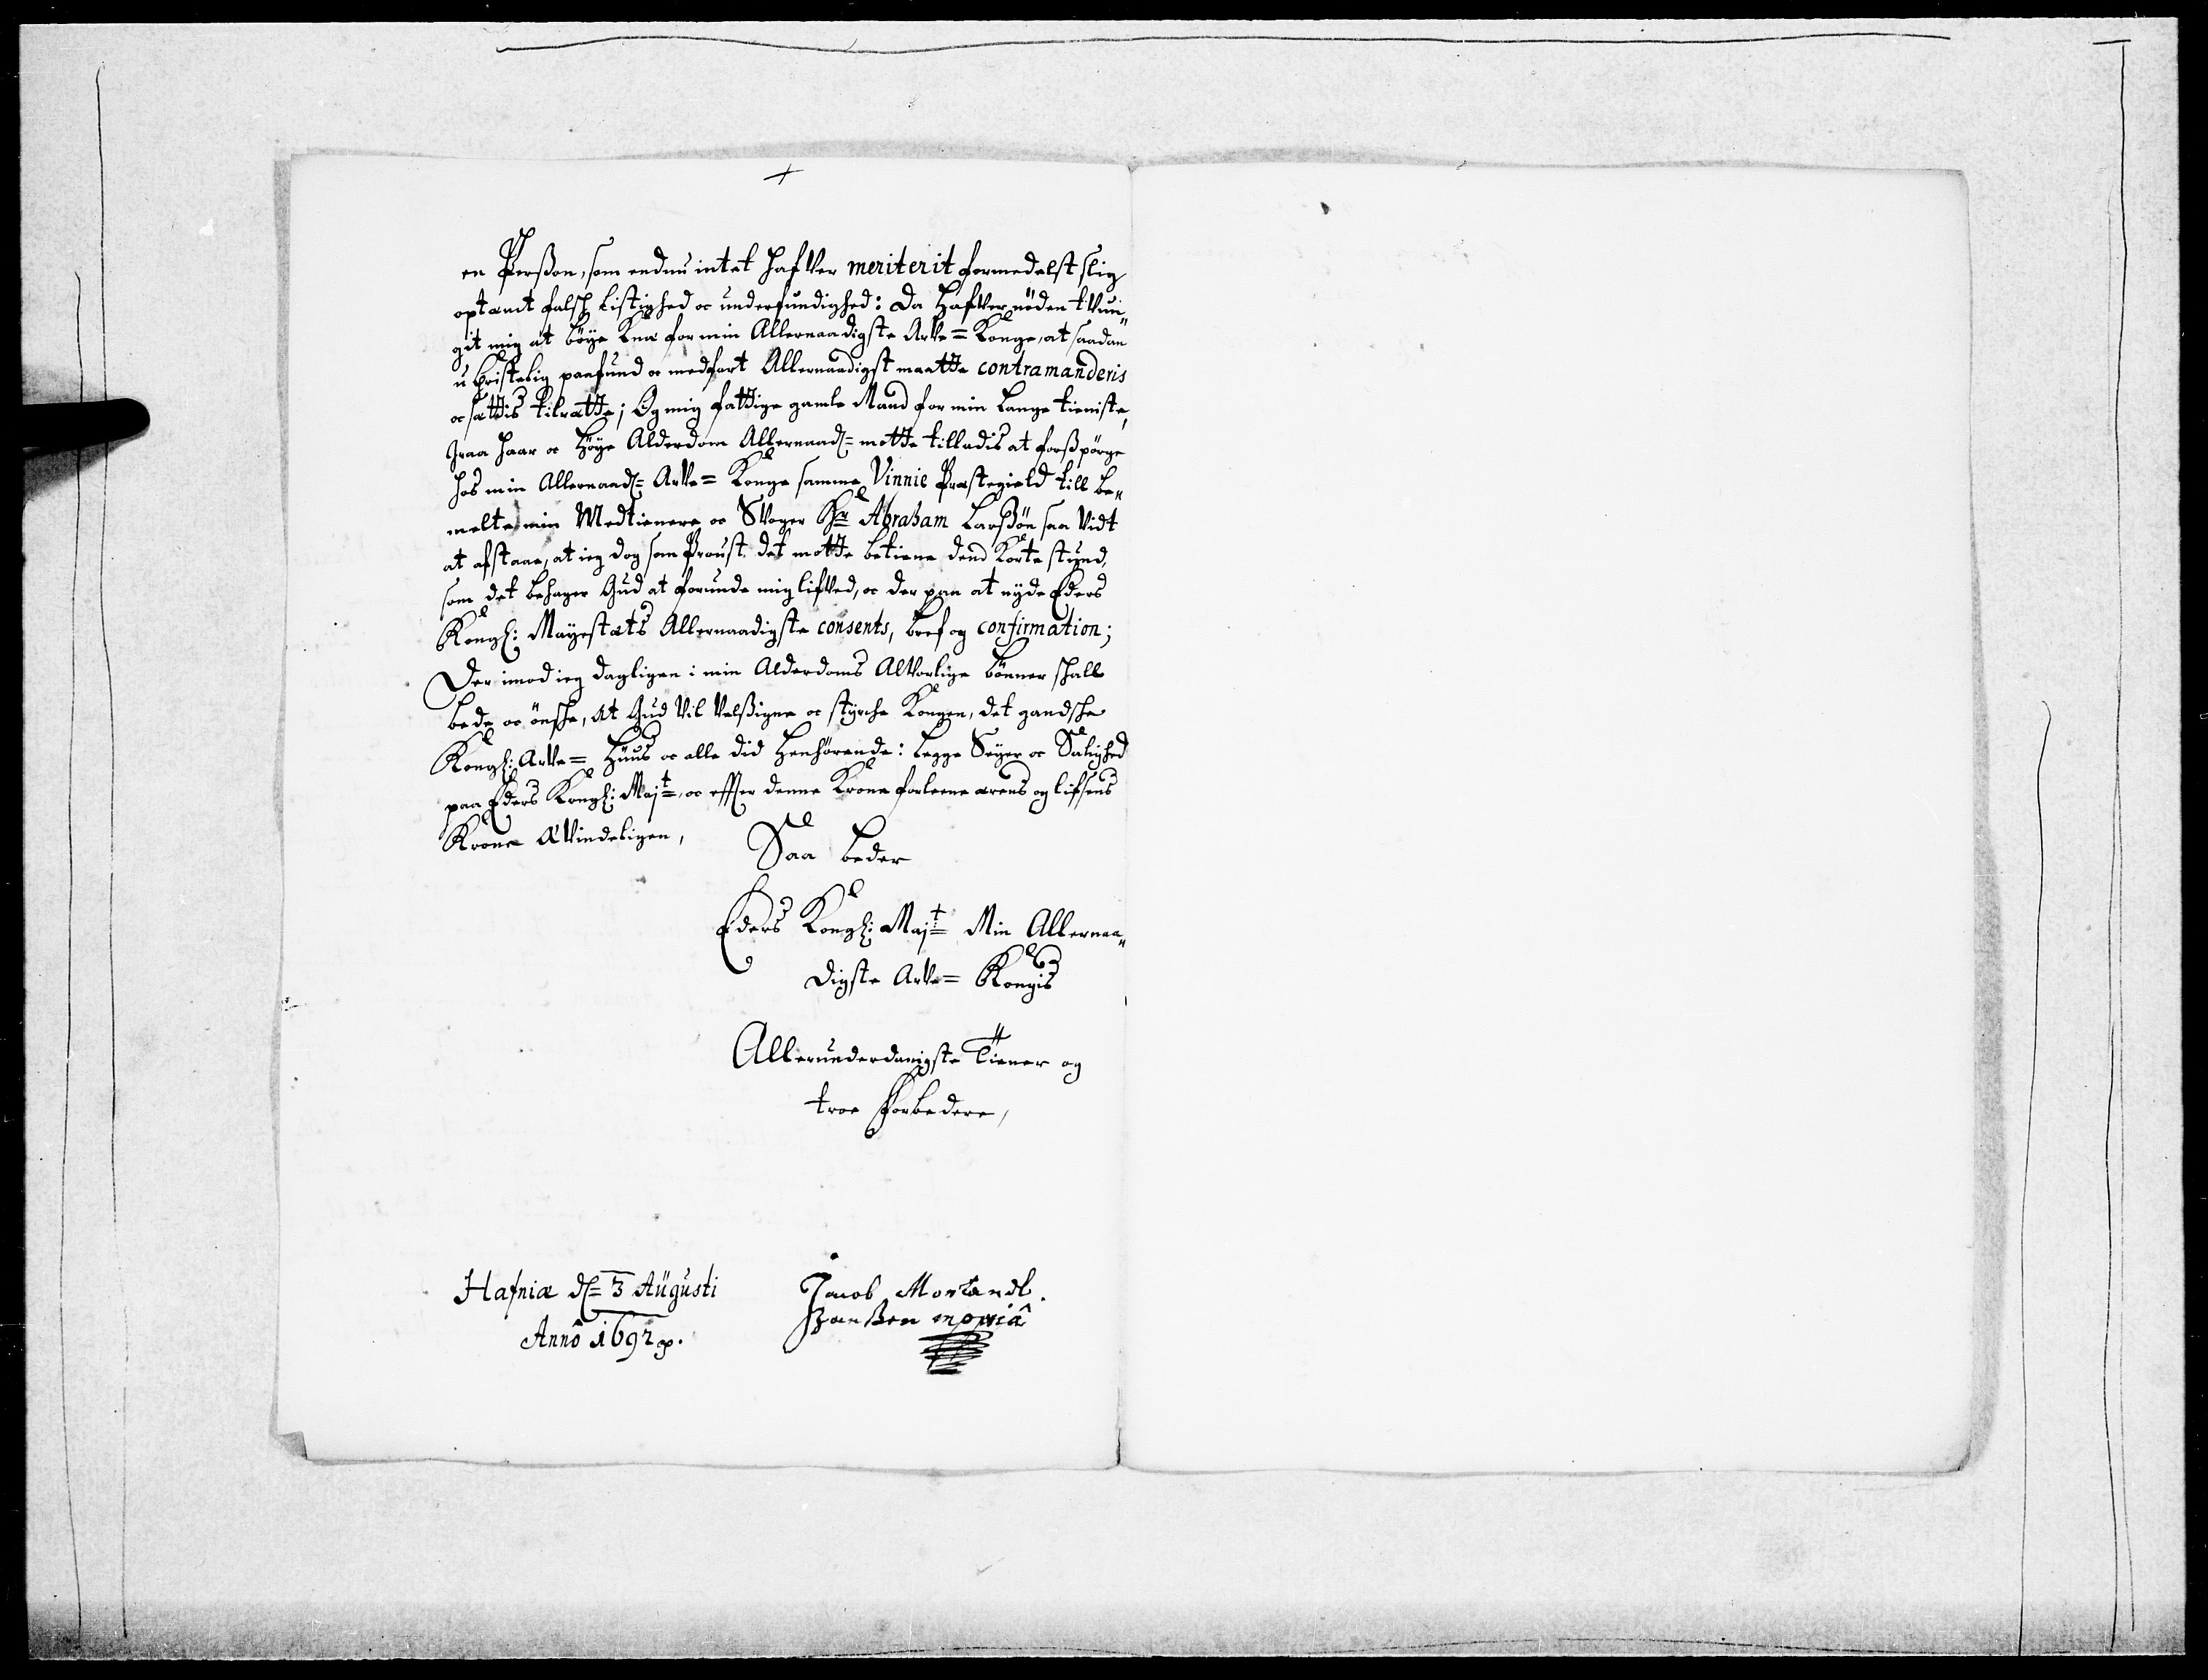 +
en Perßon, som endnu intet hafver meriterit formedelst slig
optænt falsch listighed oc underfundighed: Da hafver nöden tvun„
git mig at böye knæ for min Allernaadigste Arve=Konge, at saadan
u christelig paafund oc medfart Allernaadigst maatte contramanderis
oc sættis tilrætte; Og mig fattige gamle Mand for min lange tieniste,
graa haar oc höye Alderdom Allernaad= motte tilladis at forspörge
hos min Allernaad= Arve=Konge samme Vinnie Præstegield till be„
melte min Medtienere oc Svoger Hr Abraham Larßön saa vidt
at afstaae, at ieg dog som Proust det motte betiene dend korte stund,
som det behager Gud at forunde mig lifved, oc der paa at nyde Eders
Kongl: Mayestæts Allernaadigste consents, bref og confirmation;
Der imod ieg dagligen i min Alderdoms Alvorlige bönner schall
bede oc önsche, at Gud vil velßigne oc styrche Kongen, det gandsche
Kongl: Arve=Huus oc alle did henhörende: legge Seyer oc Salighed
paa Eders Kongl: Majt, oc effter denne Krone forleene ærens og lifsens
Krone Ævindeligen,
Saa beder
Eders Kongl: Majt Min Allernaa„
digste Arve=Kongis
Allerunderdanigste Tiener og
troe Forbedere,
Hafniæ d= 3 Augusti
Anno 1692
Jacob
Hanßen mppriâ